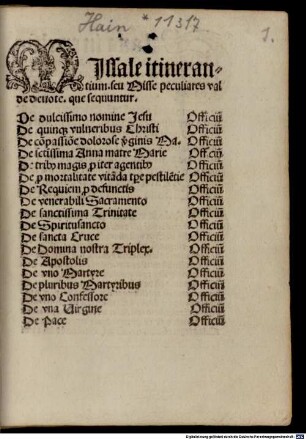 Hain * 11317
1.
Missale itineran-
tium. seu Misse peculiares val
de deuote. que sequuntur.
De dulcissimo nomine Jesu Officiū
De quinqꝫ vulneribus Christi Officiū
De cōpassiōe dolorose v̄ginis Ma. Officiū
De sctissima Anna matre Marie Officiū
De tribꝰ magis ꝓ iter agentibꝰ Officiū
De ꝓ mortalitate vitāda tꝑe pestilētie Officiū
De Requiem ꝓ defunctis Officiū
De venerabili Sacramento Officiū
De sanctissima Trinitate Officiū
De Spiritusancto Officiū
De sancta Cruce Officiū
De Domina nostra Triplex. Officiū
De Apostolis Officiū
De vno Martyre Officiū
De pluribus Martyribus Officiū
De vno Confessore Officiū
De vna Virgine Officiū
De Pace Officiū